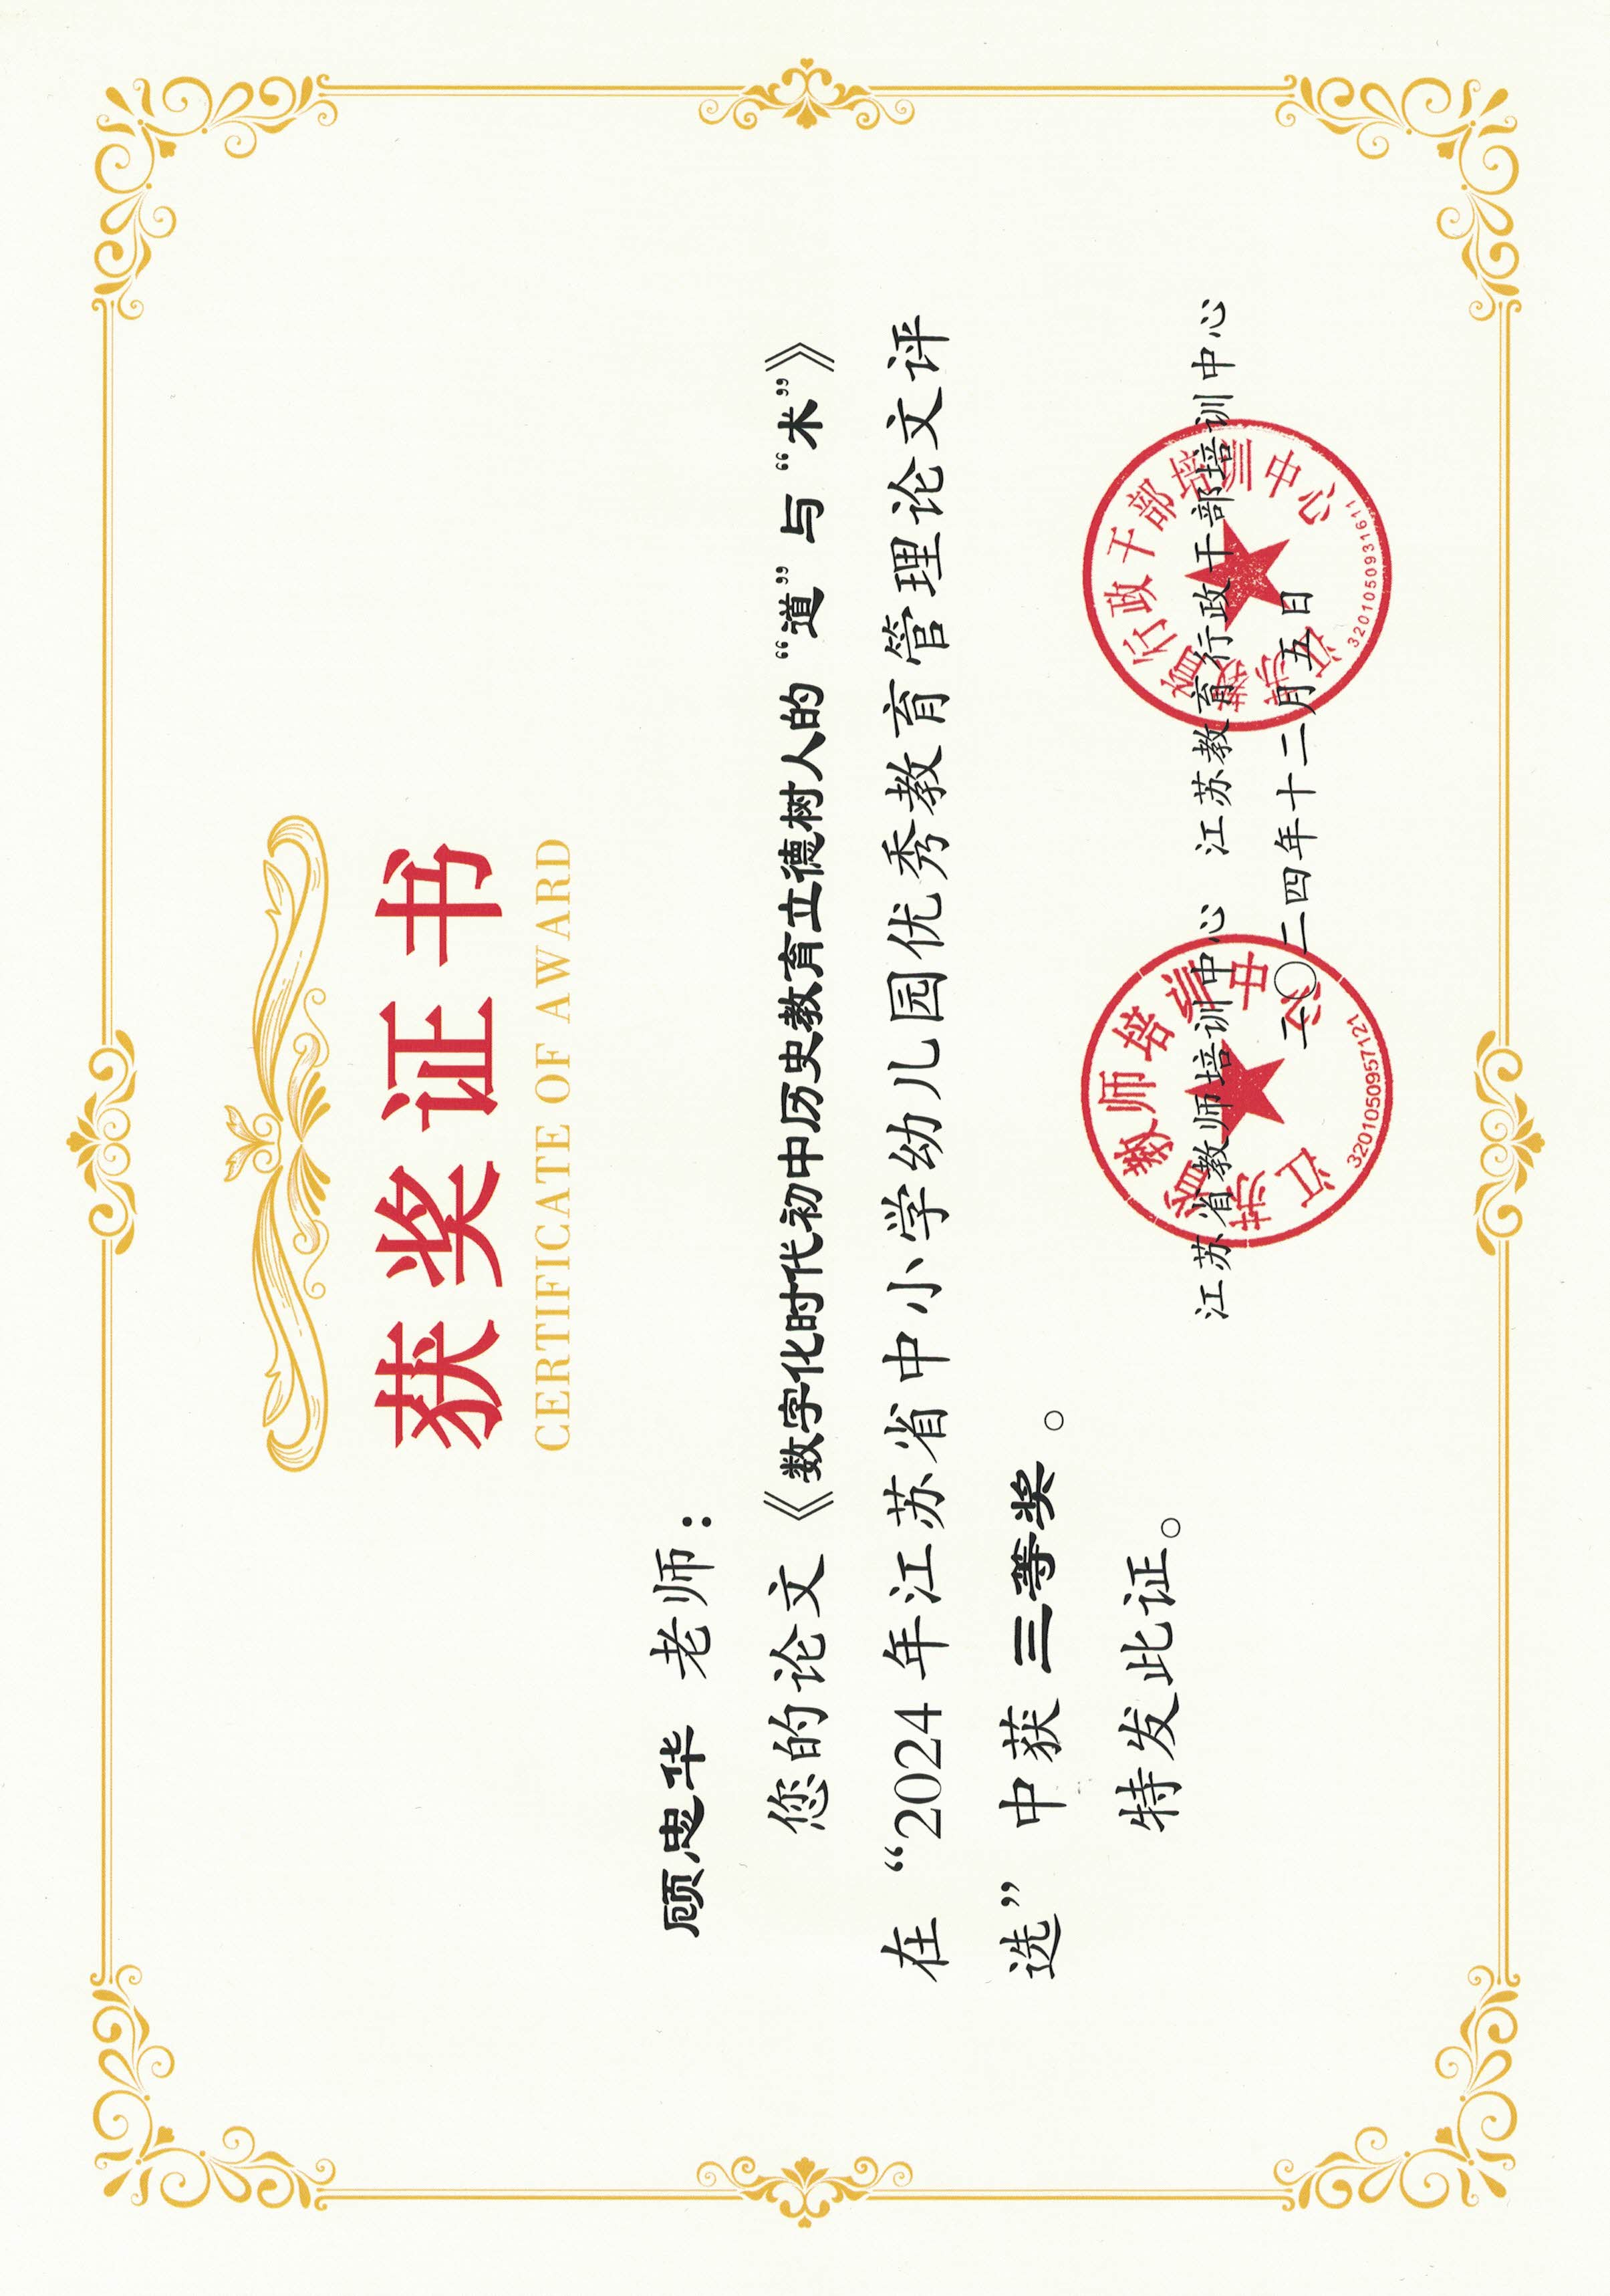 获奖证书
CERTIFICATE OF AWARD
顾忠华 老师：
您的论文《数字化时代初中历史教育立德树人的“道”与“术”》
在“2024年江苏省中小学幼儿园优秀教育管理论文评
选”中获 三等奖 。
特发此证。
江苏省教师培训中心 江苏教育行政干部培训中心
二〇二四年十二月五日
江苏省教师培训中心
3201050957121
江苏教育行政干部培训中心
3201050931611